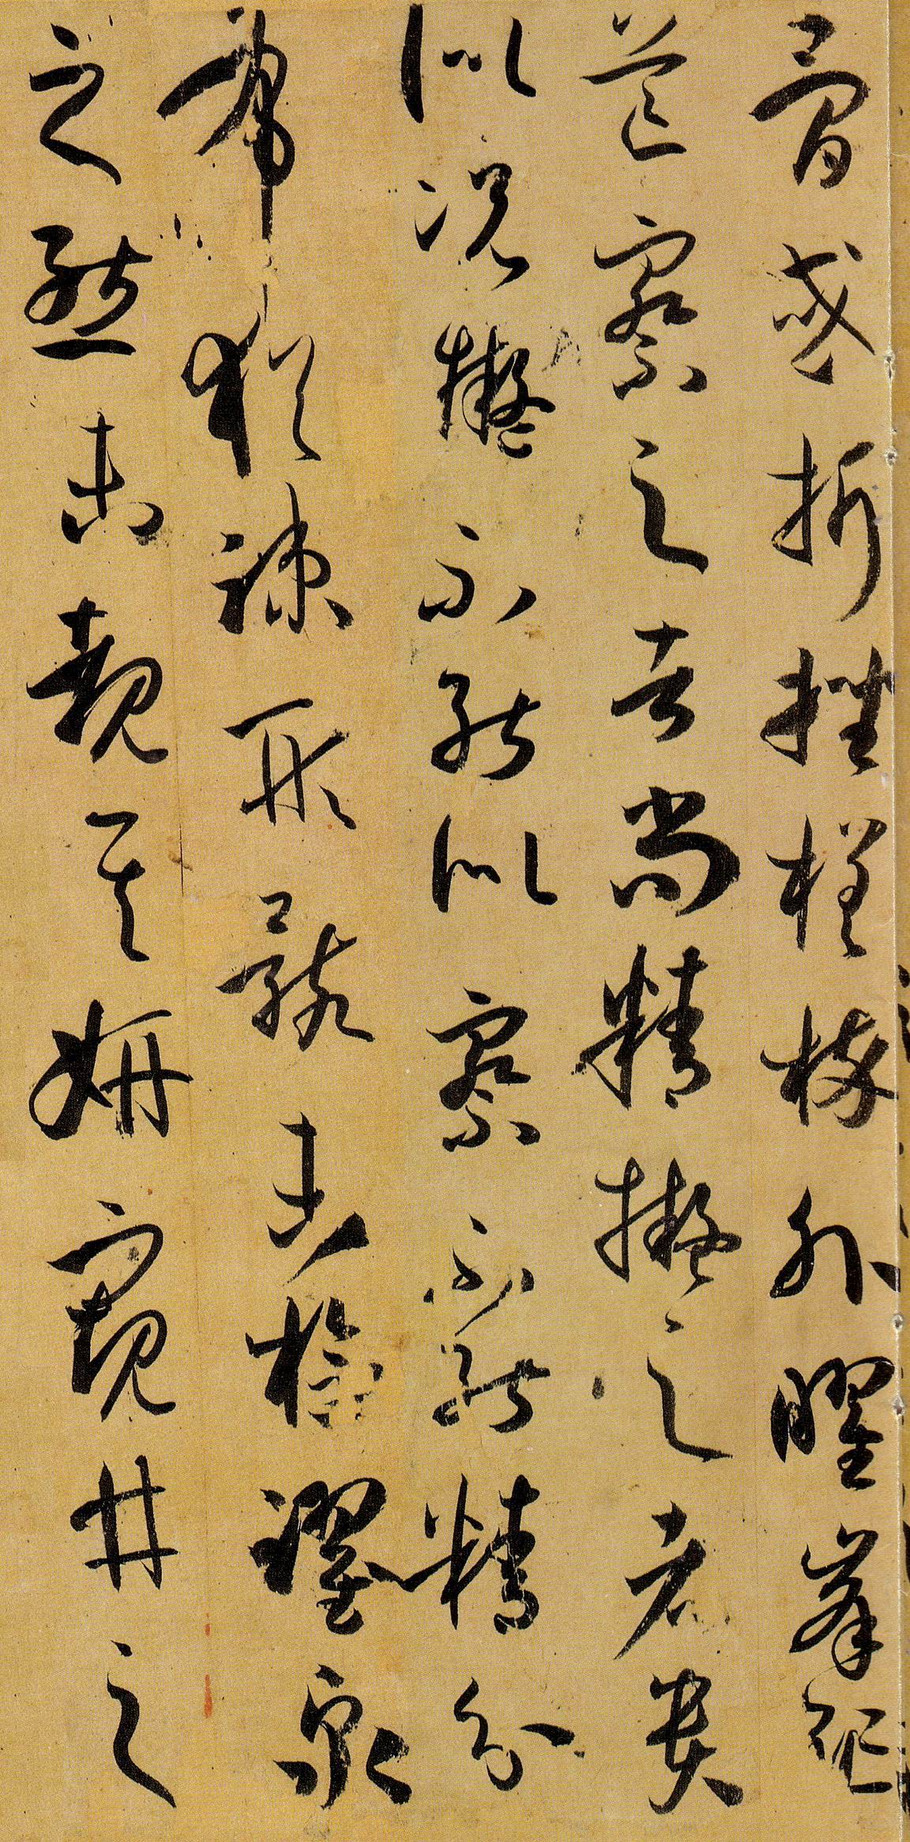 骨或折挫槎枿外曜峯
芒察之者尚精擬之者貴
似況擬不能似察不能精分
布猶疎形骸未檢躍泉
之態未覩其妍窺井之